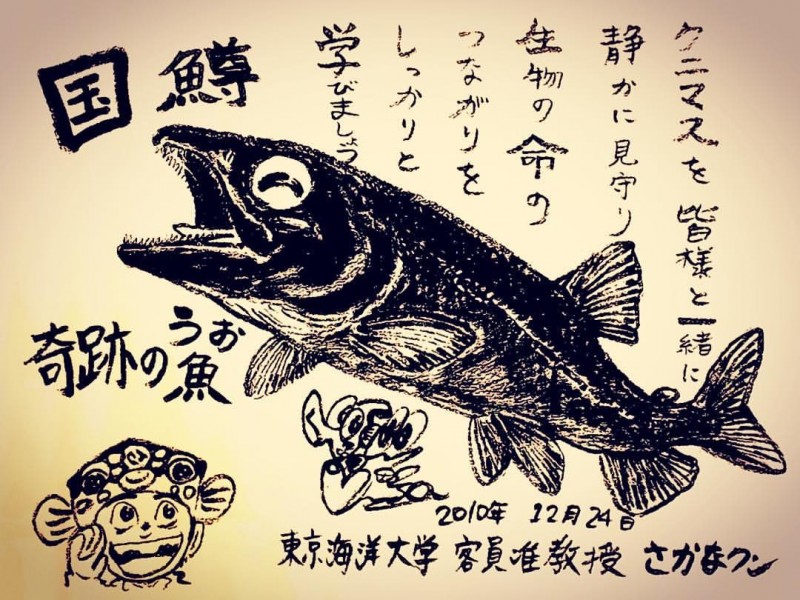 国鱒
クニマスを皆様と一緒に
静かに見守り
生物の命の
つながりを
しっかりと
学びましょう
奇跡の魚
うお
2010年 12月24日
東京海洋大学 客員准教授 さかなクン